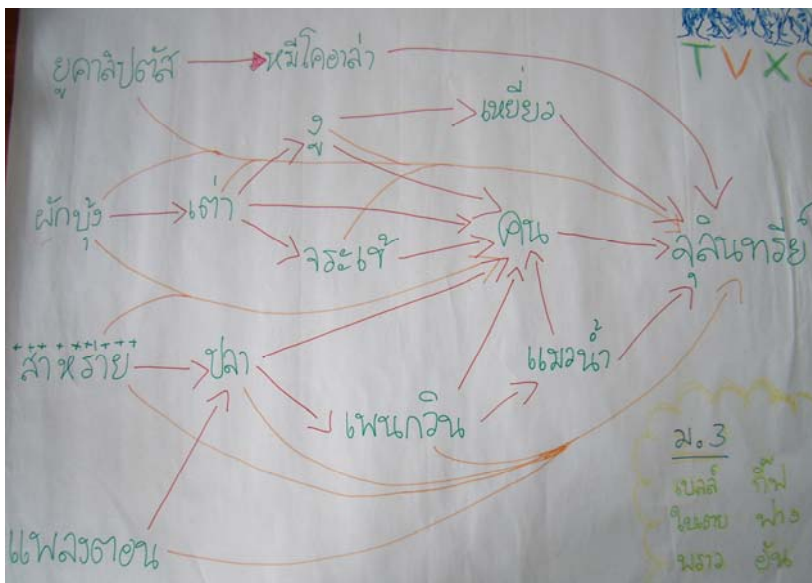 TVXQ
ยูคาลิปตัส
หมีโคอาล่า
งู
เหยี่ยว
ผักบุ้ง
เต่า
จระเข้
คน
จุลินทรีย์
สาหร่าย
ปลา
เพนกวิน
แมวน้ำ
แพลงตอน
ม.3
เบลล์ กิ๊ฟ
ฟาง
พราว อั๋น